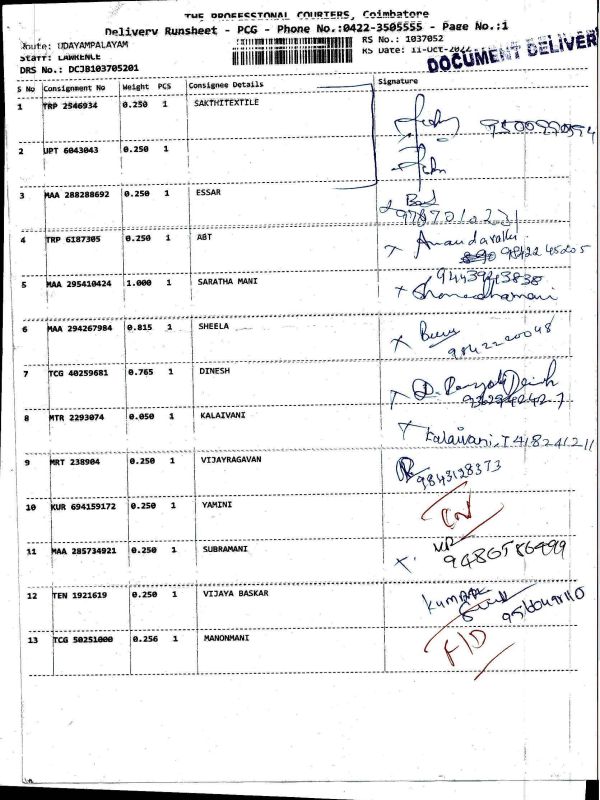 THE PROFESSIONAL COURIERS, Coimbatore
Delivery Runsheet - PCG - Phone No.:0422-3505555 - Page No.:1
Route: UDAYAMPALAYAM
RS No.: 1037052
Staff: LAWRENCE
RS Date: 11-Oct-2022
DOCUMENT DELIVER
DRS No.: DCJB103705201
S No Consignment No Weight PCS Consignee Details Signature
1 TRP 2546934 0.250 1 SAKTHITEXTILE
2 UPT 6043043 0.250 1
3 MAA 288288692 0.250 1 ESSAR
4 TRP 6187305 0.250 1 ABT
Anandavalli
9842245205
5 MAA 295410424 1.000 1 SARATHA MANI
9443943838
6 MAA 294267984 0.815 1 SHEELA
9842220048
7 TCG 40259681 0.765 1 DINESH
8 MTR 2293074 0.050 1 KALAIVANI
Kalaivani
9 MRT 238904 0.250 1 VIJAYRAGAVAN
9843128373
10 KUR 694159172 0.250 1 YAMINI
11 MAA 285734921 0.250 1 SUBRAMANI
9486586499
12 TEN 1921619 0.250 1 VIJAYA BASKAR
13 TCG 50251000 0.256 1 MANONMANI
F/D